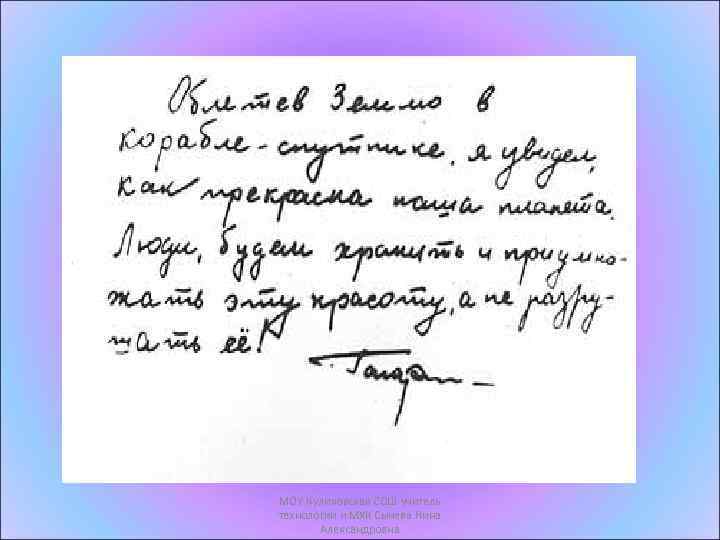 Облетев Землю в
корабле-спутнике, я увидел,
как прекрасна наша планета.
Люди, будем хранить и приумно-
жать эту красоту, а не разру-
шать её!
Гагарин
МОУ Куликовская СОШ учитель
технологии и МХК Сычева Нина
Александровна